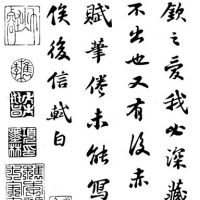 欽之愛我必深藏
不出也又有後赤
賦筆倦未能寫
俟後信軾白